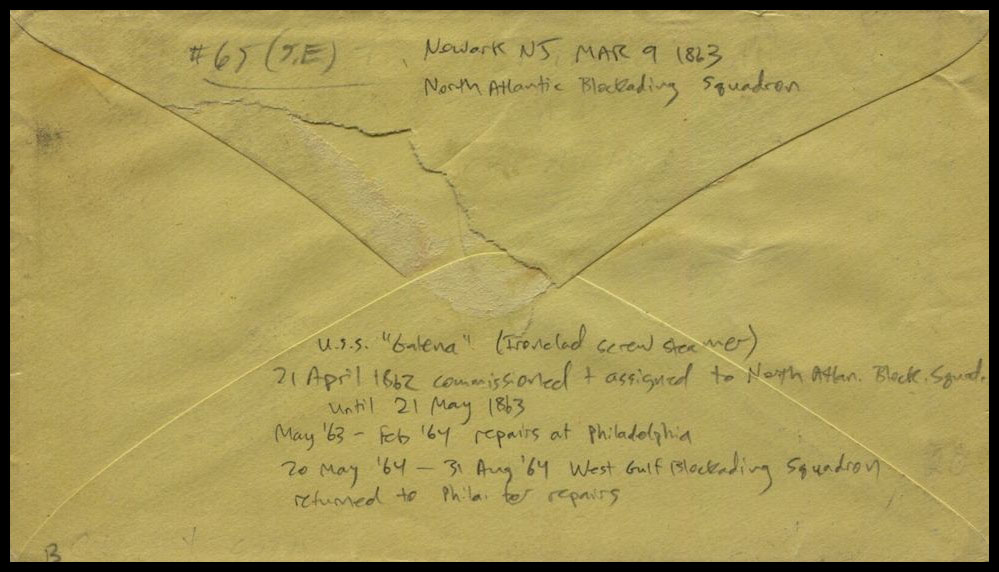 #65 (J.E) Newark NJ, MAR 9 1863
North Atlantic Blockading Squadron
U.S.S. "Galena" (Ironclad screw steamer)
21 April 1862 commissioned + assigned to North Atlan. Block. Squad.
until 21 May 1863
May '63 - Feb '64 repairs at Philadelphia
20 May '64 - 31 Aug '64 West Gulf Blockading Squadron
returned to Phila. for repairs
B